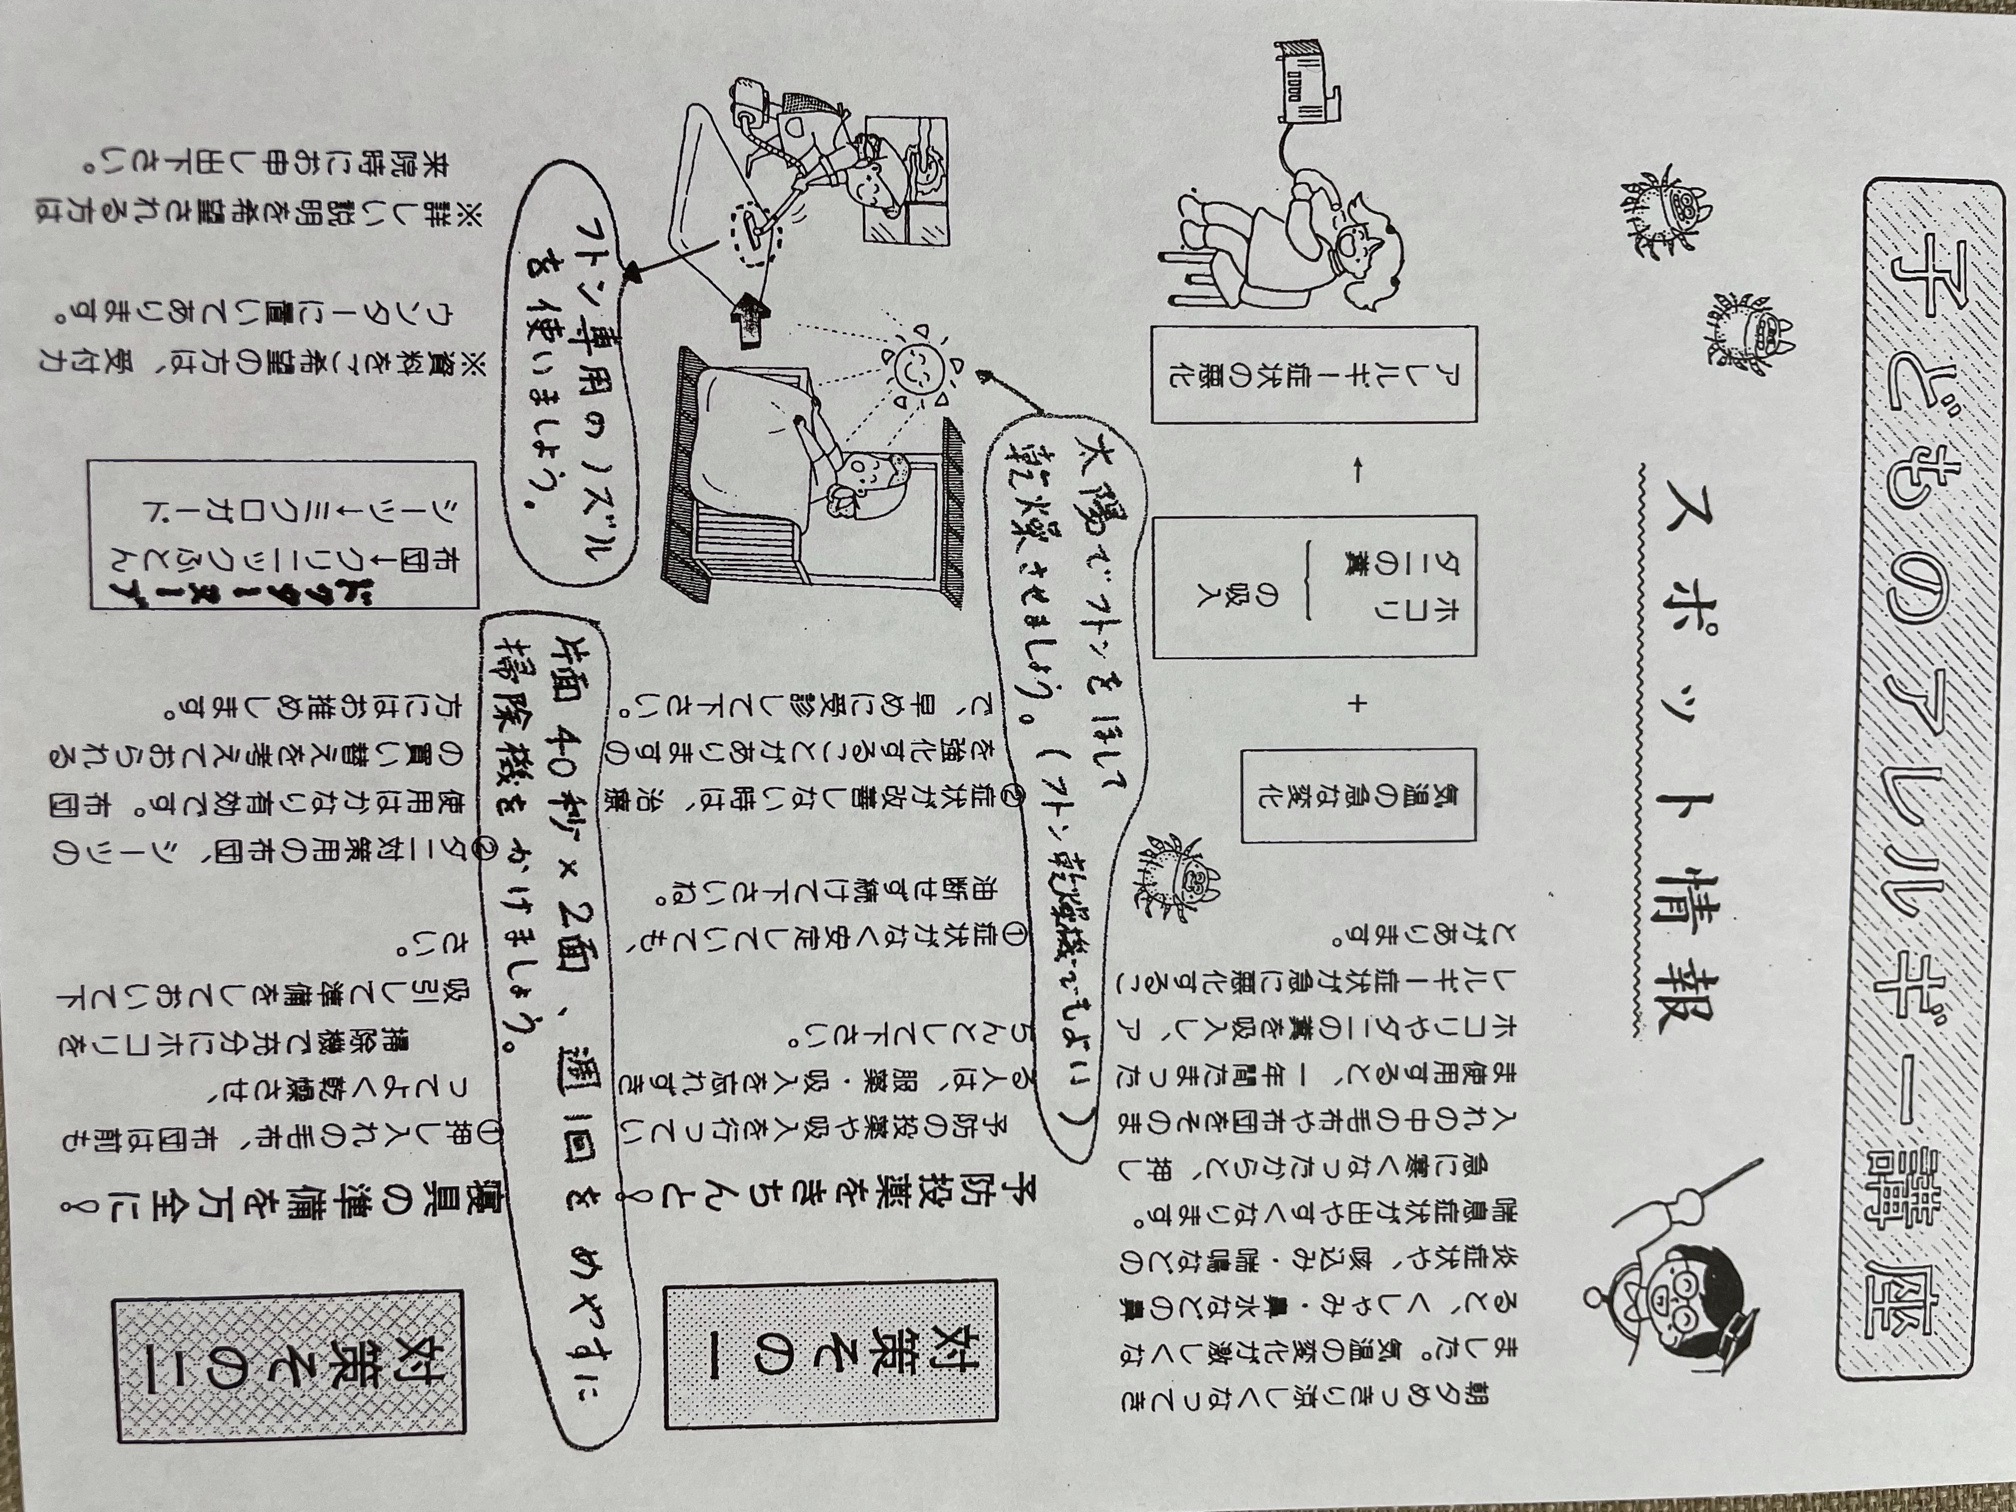 子どものアレルギー講座
スポット情報
朝夕めっきり涼しくなってき
ました。気温の変化が激しくな
ると、くしゃみ・鼻水などの鼻
炎症状や、咳込み・喘鳴などの
喘息症状が出やすくなります。
急に寒くなったからと、押し
入れの中の毛布や布団をそのま
ま使用すると、一年間たまった
ホコリやダニの糞を吸入し、ア
レルギー症状が急に悪化するこ
とがあります。
気温の急な変化
+
ホコリ
ダニの糞
の吸入
→
アレルギー症状の悪化
対策その一
予防投薬をきちんと!
予防の投薬や吸入を行ってい
る人は、服薬・吸入を忘れずき
ちんとして下さい。
①症状がなく安定していても、
油断せず続けて下さいね。
②症状が改善しない時は、治療
を強化することがありますの
で、早めに受診して下さい。
太陽でフトンをほして
乾燥させましょう。(フトン乾燥機でもよい)
フトン専用のノズル
を使いましょう。
片面40秒×2面、週1回をめやすに
掃除機をかけましょう。
対策その二
寝具の準備を万全に!
①押し入れの毛布、布団は前も
ってよく乾燥させ、
掃除機で充分にホコリを
吸引して準備をしておいて下
さい。
②ダニ対策用の布団、シーツの
使用はかなり有効です。布団
の買い替えを考えておられる
方にはお推めします。
ドクターヌープ
布団→クリニックふとん
シーツ→ミクロガード
※資料をご希望の方は、受付カ
ウンターに置いてあります。
※詳しい説明を希望される方は
来院時にお申し出下さい。